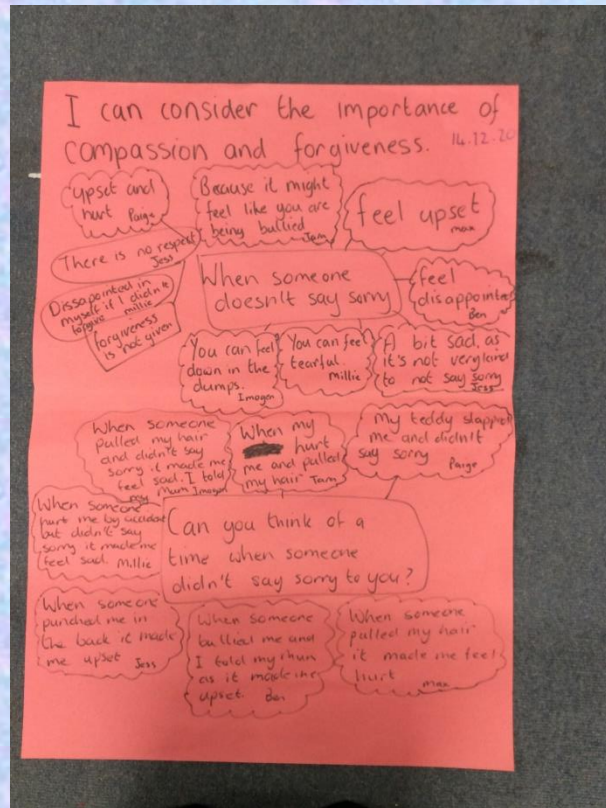 I can consider the importance of
compassion and forgiveness. 14.12.20
upset and
hurt Paige
Because it might
feel like you are
being bullied
Jam
feel upset
max
There is no respect
Jess
Dissapointed in
myself if I didn't
forgive millie
forgiveness
is not given
When someone
doesn't say sorry
feel
disappointed
Ben
You can feel
down in the
dumps.
Imogen
You can feel
tearful.
Millie
A bit sad, as
it's not very kind
to not say sorry
Jess
When someone
pulled my hair
and didn't say
sorry it made me
feel sad. I told
my Mum Imogen
When my
hurt
me and pulled
my hair Jam
My teddy slapped
me and didn't
say sorry
Paige
When someone
hurt me by accident
but didn't say
sorry it made me
feel sad. Millie
Can you think of a
time when someone
didn't say sorry to you?
When someone
punched me in
the back it made
me upset Jess
When someone
bullied me and
I told my mum
as it made me
upset. Ben
When someone
pulled my hair
it made me feel
hurt
max